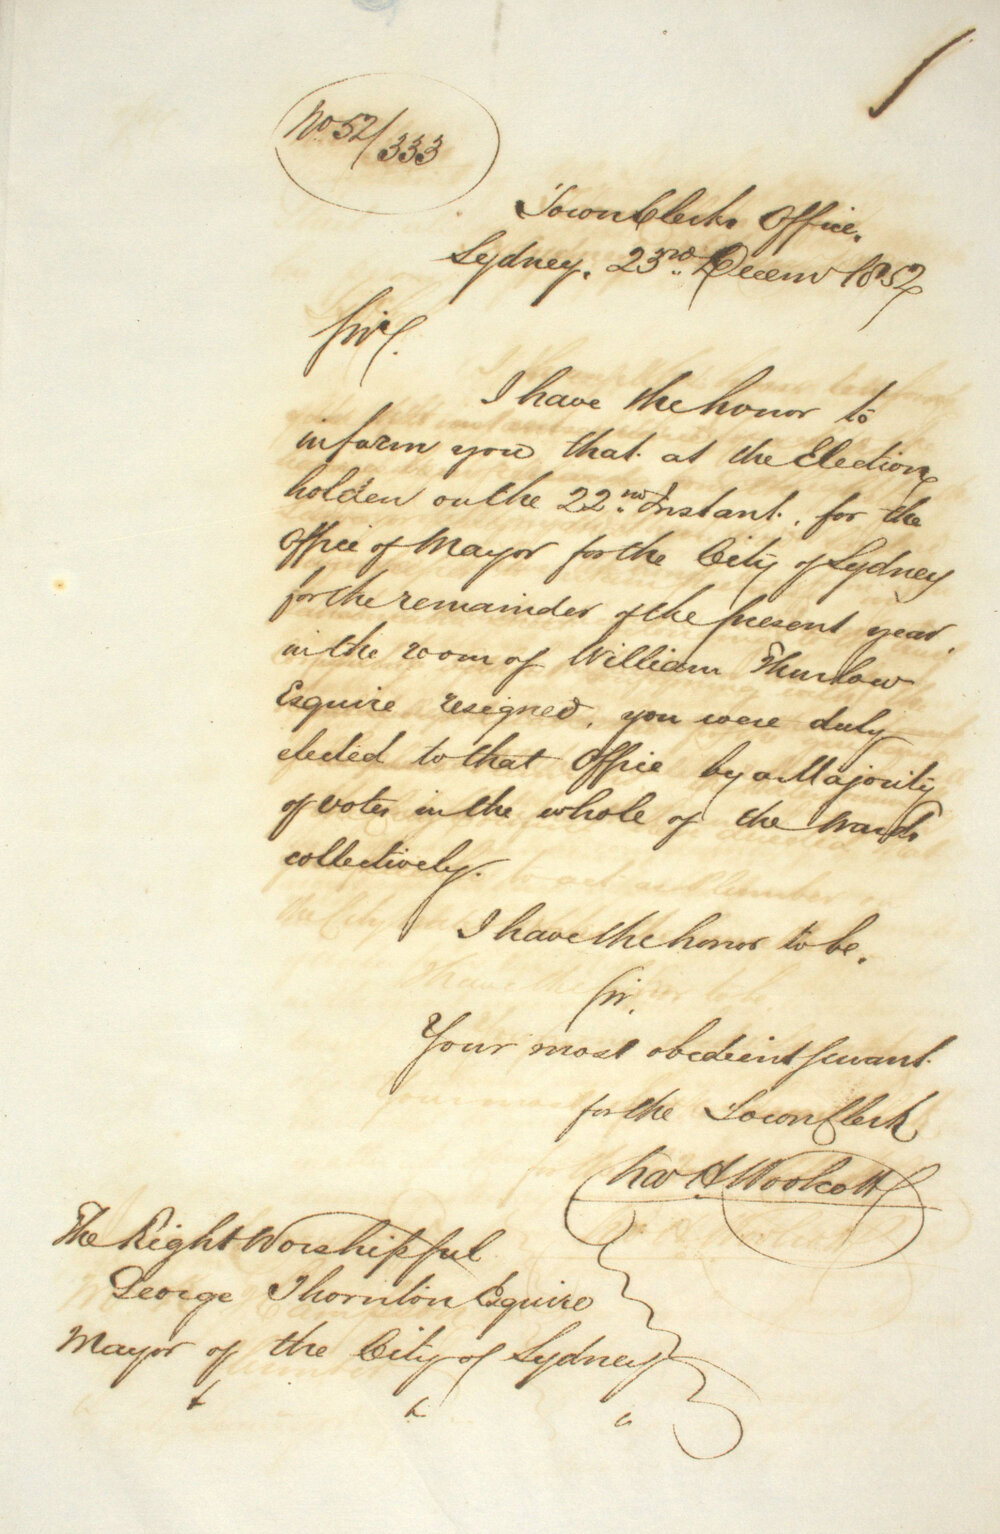 No 52/333
Town Clerks Office.
Sydney. 23rd Decemr 1852
Sir,
I have the honor to
inform you that at the Election
holden on the 22nd Instant, for the
Office of Mayor for the City of Sydney
for the remainder of the present year,
in the room of William Thurlow
Esquire resigned, you were duly
elected to that Office by a Majority
of votes in the whole of the Wards
collectively.
I have the honor to be.
Sir.
Your most obedient Servant
for the Town Clerk
Woolcott
The Right Worshipful
George Thornton Esquire
Mayor of the City of Sydney